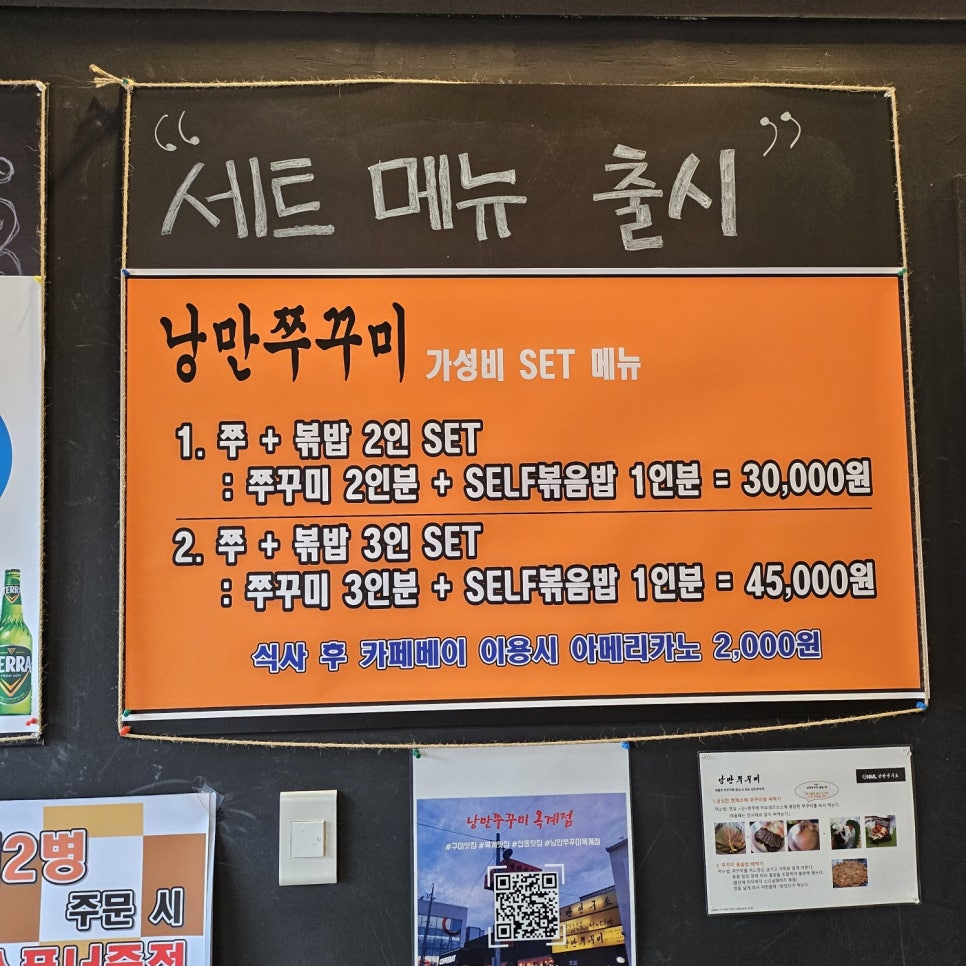 “세트 메뉴 출시”
낭만쭈꾸미 가성비 SET 메뉴
1. 쭈 + 볶밥 2인 SET
: 쭈꾸미 2인분 + SELF볶음밥 1인분 = 30,000원
2. 쭈 + 볶밥 3인 SET
: 쭈꾸미 3인분 + SELF볶음밥 1인분 = 45,000원
식사 후 카페베이 이용시 아메리카노 2,000원
TERRA
2병
주문 시
낭만쭈꾸미 옥계점
#구미맛집 #옥계맛집 #산동맛집 #낭만쭈꾸미옥계점
낭만쭈꾸미